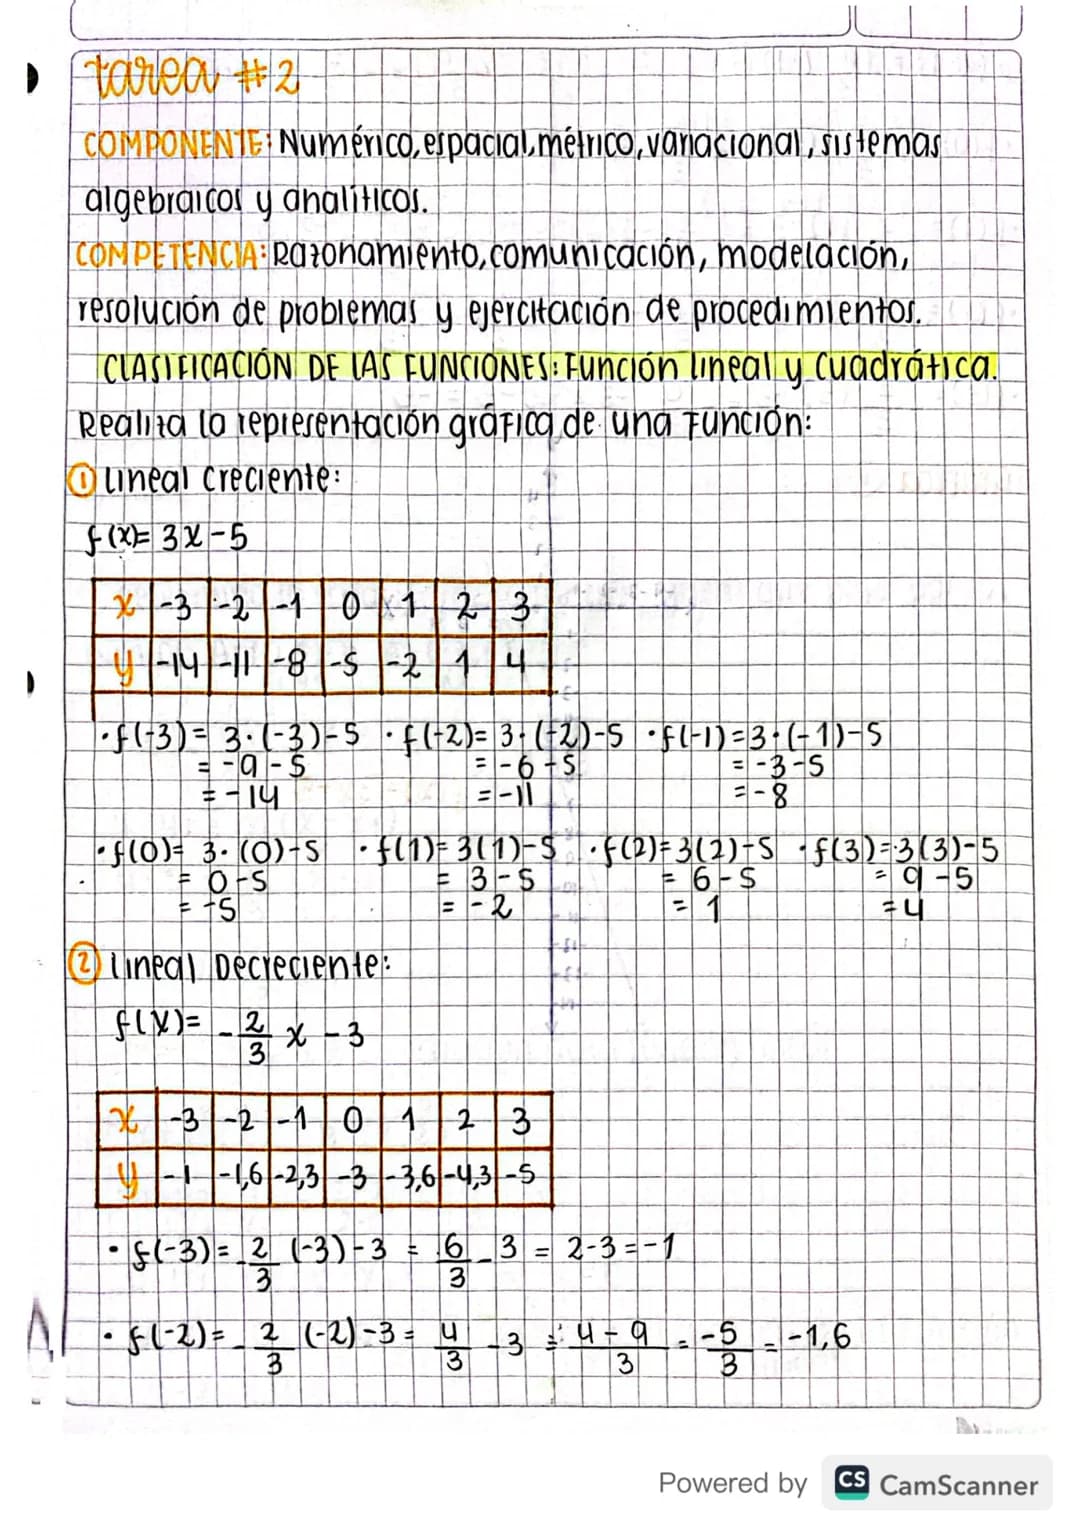 tarea #2
COMPONENTE: Numérico, espacial, métrico, variacional, sistemas
algebraicos y analíticos.
COMPETENCIA: Razonamiento, comunicación, modelación,
resolución de problemas y ejercitación de procedimientos.
CLASIFICACIÓN DE LAS FUNCIONES: Función lineal y cuadrática.
Realiza la representación gráfica de una función:
① Lineal creciente:
f(x)= 3x-5
x -3 -2 -1 0 1 2 3
y -14 -11 -8 -5 -2 1 4
·f(-3)= 3·(-3)-5 ·f(-2)= 3·(-2)-5 ·f(-1)=3·(-1)-5
= -9-5 = -6-5 = -3-5
= -14 = -11 = -8
·f(0)= 3·(0)-5 ·f(1)= 3(1)-5 ·f(2)=3(2)-5 ·f(3)=3(3)-5
= 0-5 = 3-5 = 6-5 = 9-5
= -5 = -2 = 1 =4
② Lineal Decreciente:
f(x)= -2/3 x - 3
x -3 -2 -1 0 1 2 3
y -1 -1,6 -2,3 -3 -3,6 -4,3 -5
· f(-3)= -2/3 (-3)-3 = 6/3 - 3 = 2-3 = -1
· f(-2)= -2/3 (-2)-3 = 4/3 - 3 = 4-9/3 = -5/3 = -1,6
Powered by CS CamScanner